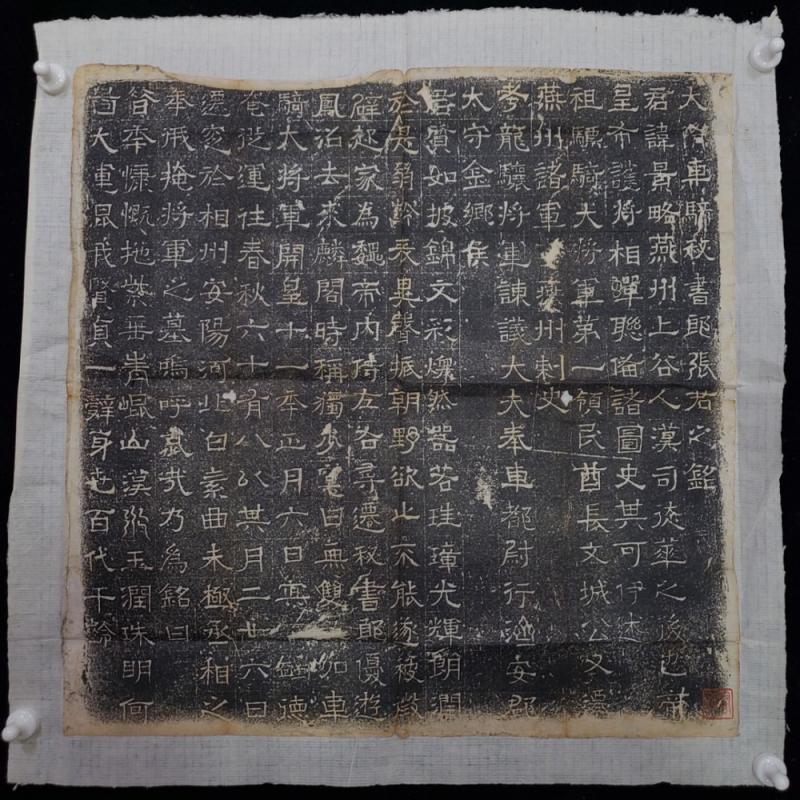 大隋車騎秘書郎張君之銘
君諱景略燕州上谷人漢司徒華之後也
皇帝議將相蟬聯備諸圖史其可
祖驃騎大將軍第一領民酋長文城公又遷
燕州諸軍事燕州刺史
考龍驤將軍諫議大夫奉車都尉行濟安郡
太守金鄉侯
君質如披錦文彩爛然器若珪璋光輝朗潤
於是弱齡表異聲振朝野欲止不能遂被徵
辟起家為魏帝內侍左右尋遷秘書郎優遊
鳳沼去來麟閣時稱獨步當曰無雙加車
騎大將軍開皇十一年正月六日德
奄從運往春秋六十有八以其月二廿六日
遷窆於相州安陽河北白素曲未極丞相之
奉俄掩將軍之墓嗚呼哀哉乃為銘曰
慷慨地崐山漢水玉潤珠明何
大運貞一辭身世百代千齡